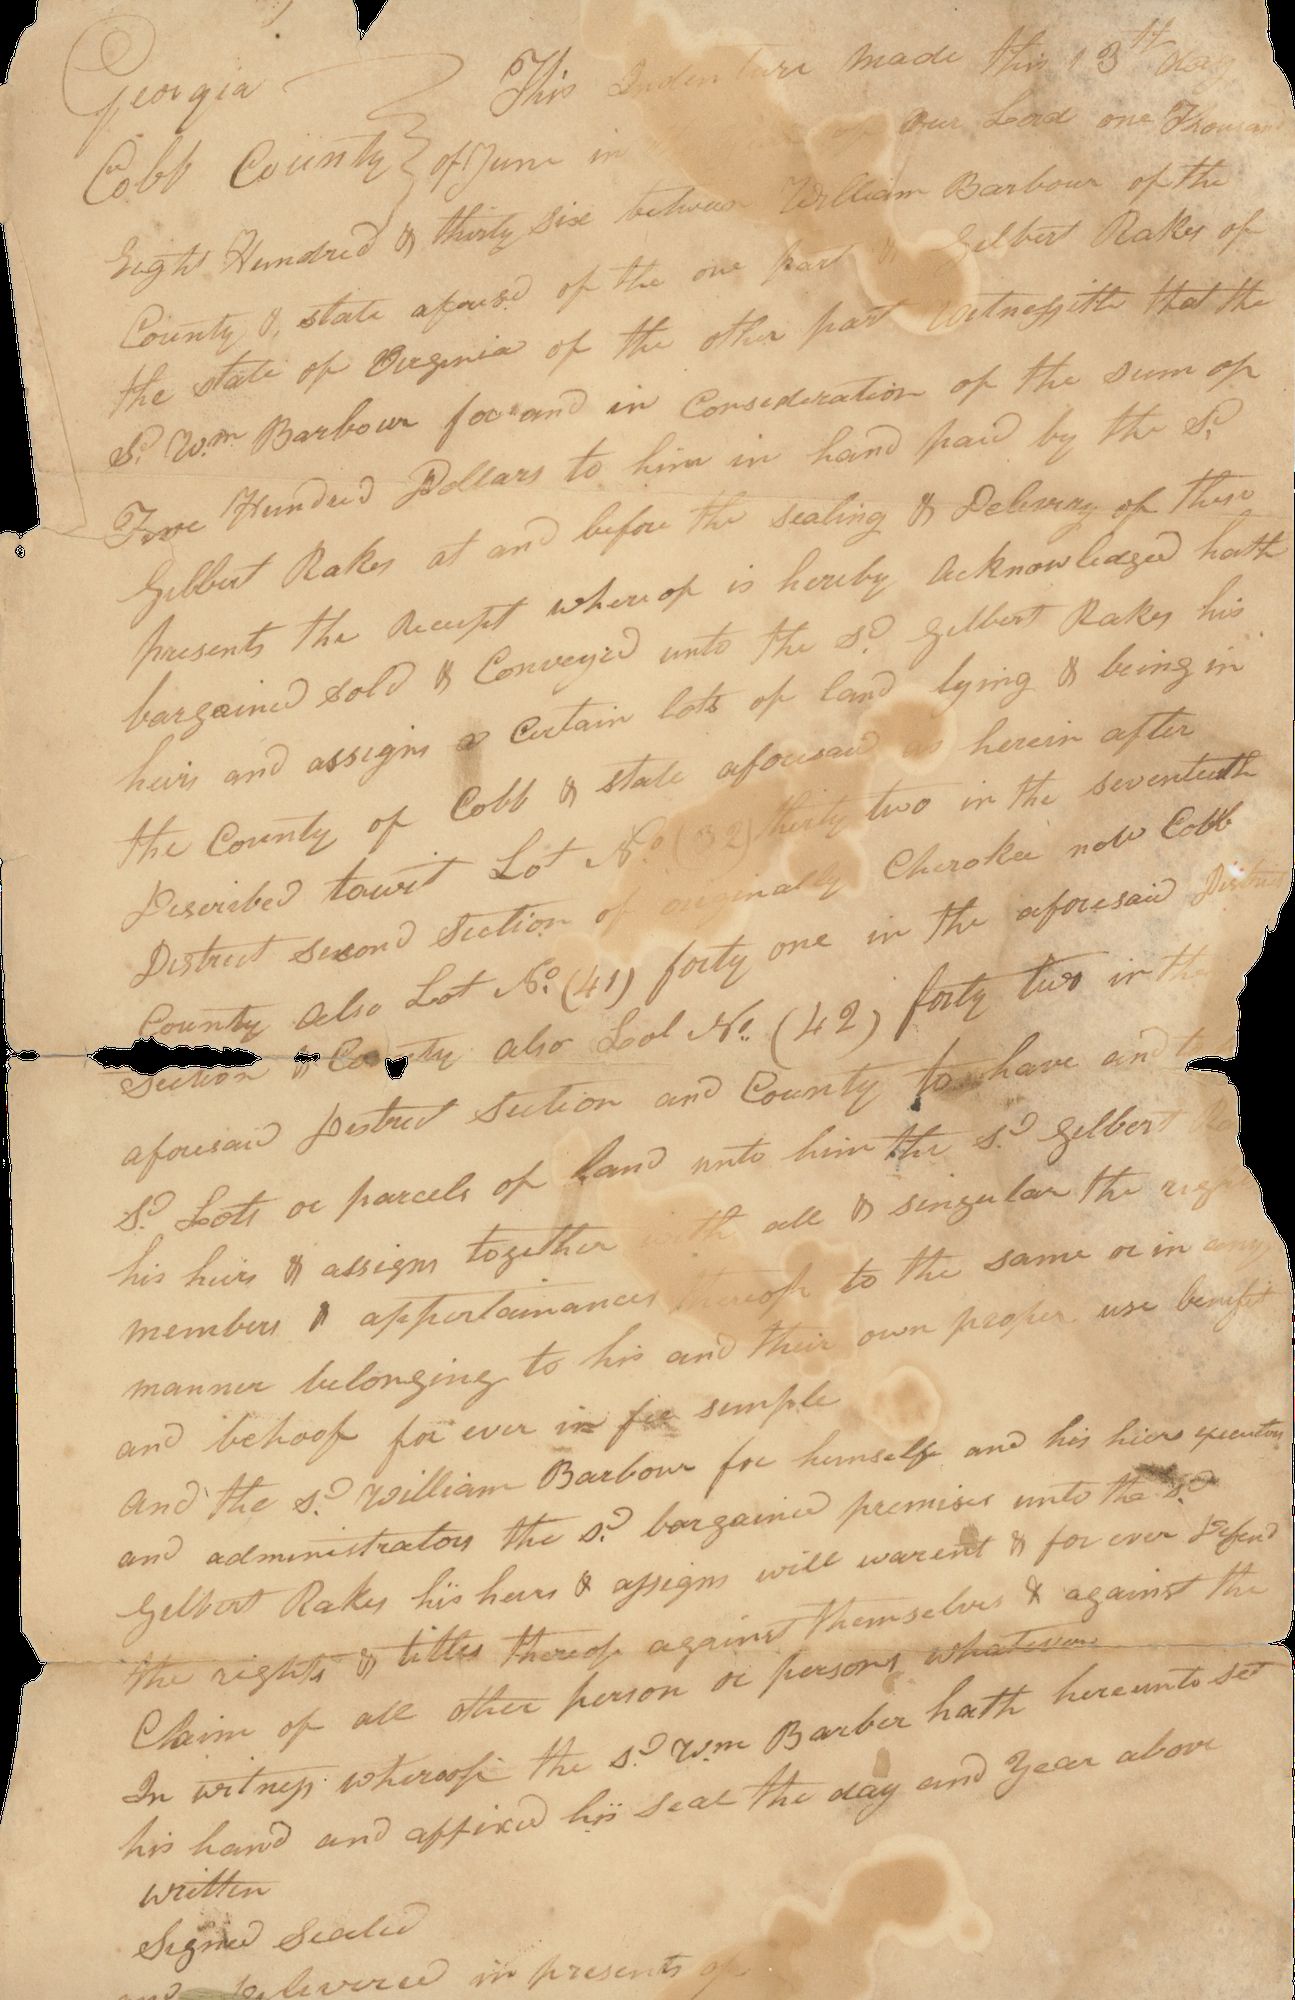 Georgia This Indenture made this 13th day
Cobb County of June in of our Lord one Thousand
Eight Hundred & thirty six between William Barbour of the
County & state aforesd of the one part & Gilbert Rakes of
the state of Virginia of the other part Witnessith that the
Sd. Wm. Barbour for and in Consideration of the sum of
Hundred Dollars to him in hand paid by the Sd.
Gilbert Rakes at and before the sealing & Delivery of these
presents the Receipt whereof is hereby Acknowledged hath
bargained sold & Conveyed unto the sd. Gilbert Rakes his
heirs and assigns Certain lots of land lying & being in
the County of Cobb & state aforesaid as herein after
Discribed towit Lot No. (32) thirty two in the seventeeth
District second Section of originally Cherokee now Cobb
County also Lot No. (41) forty one in the aforesaid District
Section & County also Lot No. (42) forty two in the
aforesaid District Section and County to have and to
Sd. Lots or parcels of land unto him the sd. Gilbert
his heirs & assigns together with all & singular the
members & appertainances thereof to the same or in any
manner belonging to his and their own proper use benifit
and behoof for ever in fee simple
And the sd. William Barbour for himself and his hiers executors
and administrators the sd. bargained premises unto the sd
Gilbert Rakes his heirs & assigns will warent & for ever Defend
the rights & titles thereof against themselves & against the
Claim of all other person or persons whatever
In witness whereof the sd. Wm Barber hath hereunto set
his hand and affixed his seal the day and year above
written
Signed Sealed
and Delivered in presents of